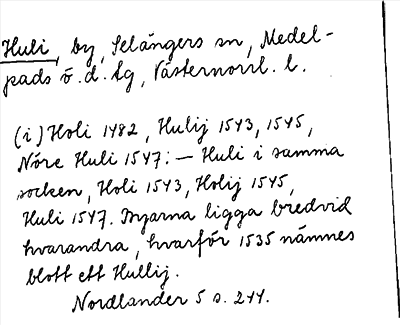 Huli, by, Selångers sn, Medel-
pads ö. d. tg, Västernorrl. l.
(i) Holi 1482, Hulij 1543, 1545,
Nöre Huli 1547: — Huli i samma
socken, Holi 1543, Holij 1545,
Huli 1547. Byarna ligga bredvid
hvarandra, hvarför 1535 nämnes
blott ett Hullij.
Nordlander 5 s. 244.